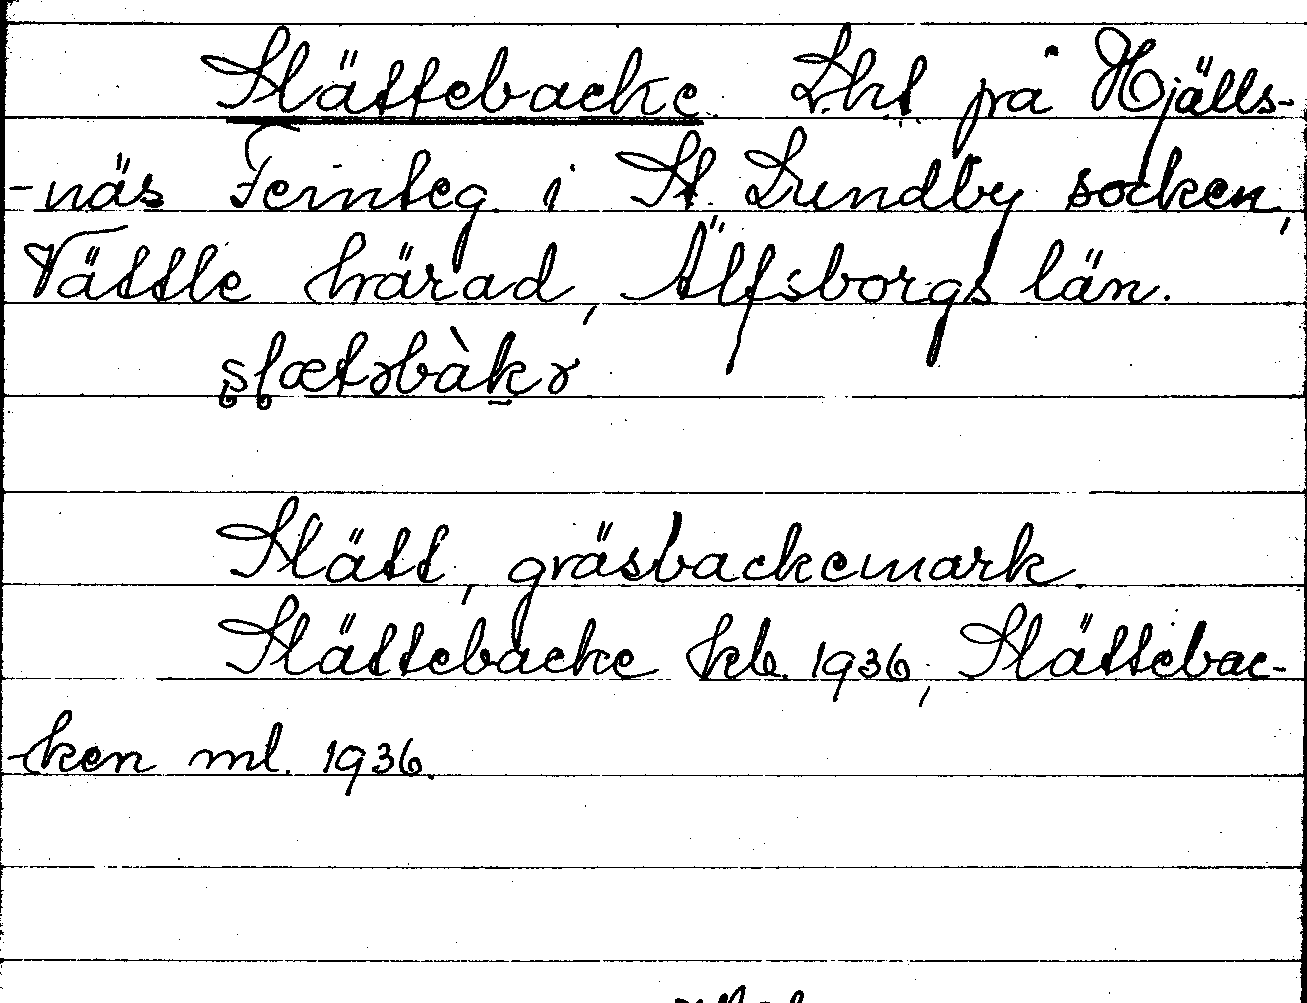 Slättebacke. Lht. på Hjälls-
-näs Femteg. i St. Lundby socken,
Vättle härad, Älfsborgs län.
slætəbàkə
Slätt, gräsbackemark.
Slättebacke kb. 1936, Slättebac-
-ken ml. 1936.